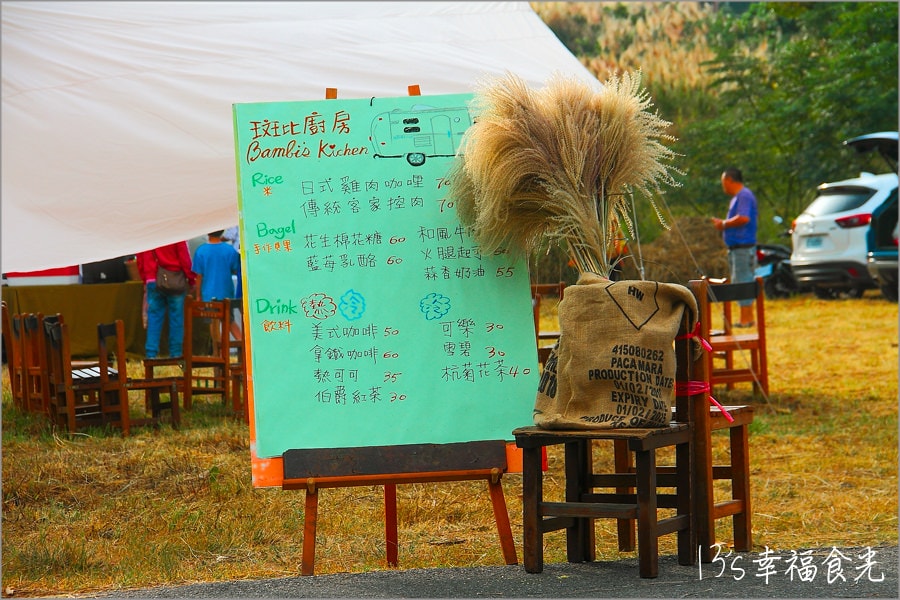 斑比廚房
Bambi's Kichen
Rice
米
日式雞肉咖哩 70
傳統客家控肉 70
Bagel
手作貝果
花生棉花糖 60
藍莓乳酪 60
和風牛
火腿起
蒜香奶油 55
Drink
飲料
熱 冷
美式咖啡 50
拿鐵咖啡 60
熱可可 35
伯爵紅茶 30
冷
可樂 30
雪碧 30
杭菊花茶 40
HW
415080262
PACAMARA
PRODUCTION DATE
01/02/
EXPIRY DA
01/02/
PRODUCE OF
13's 幸福食光